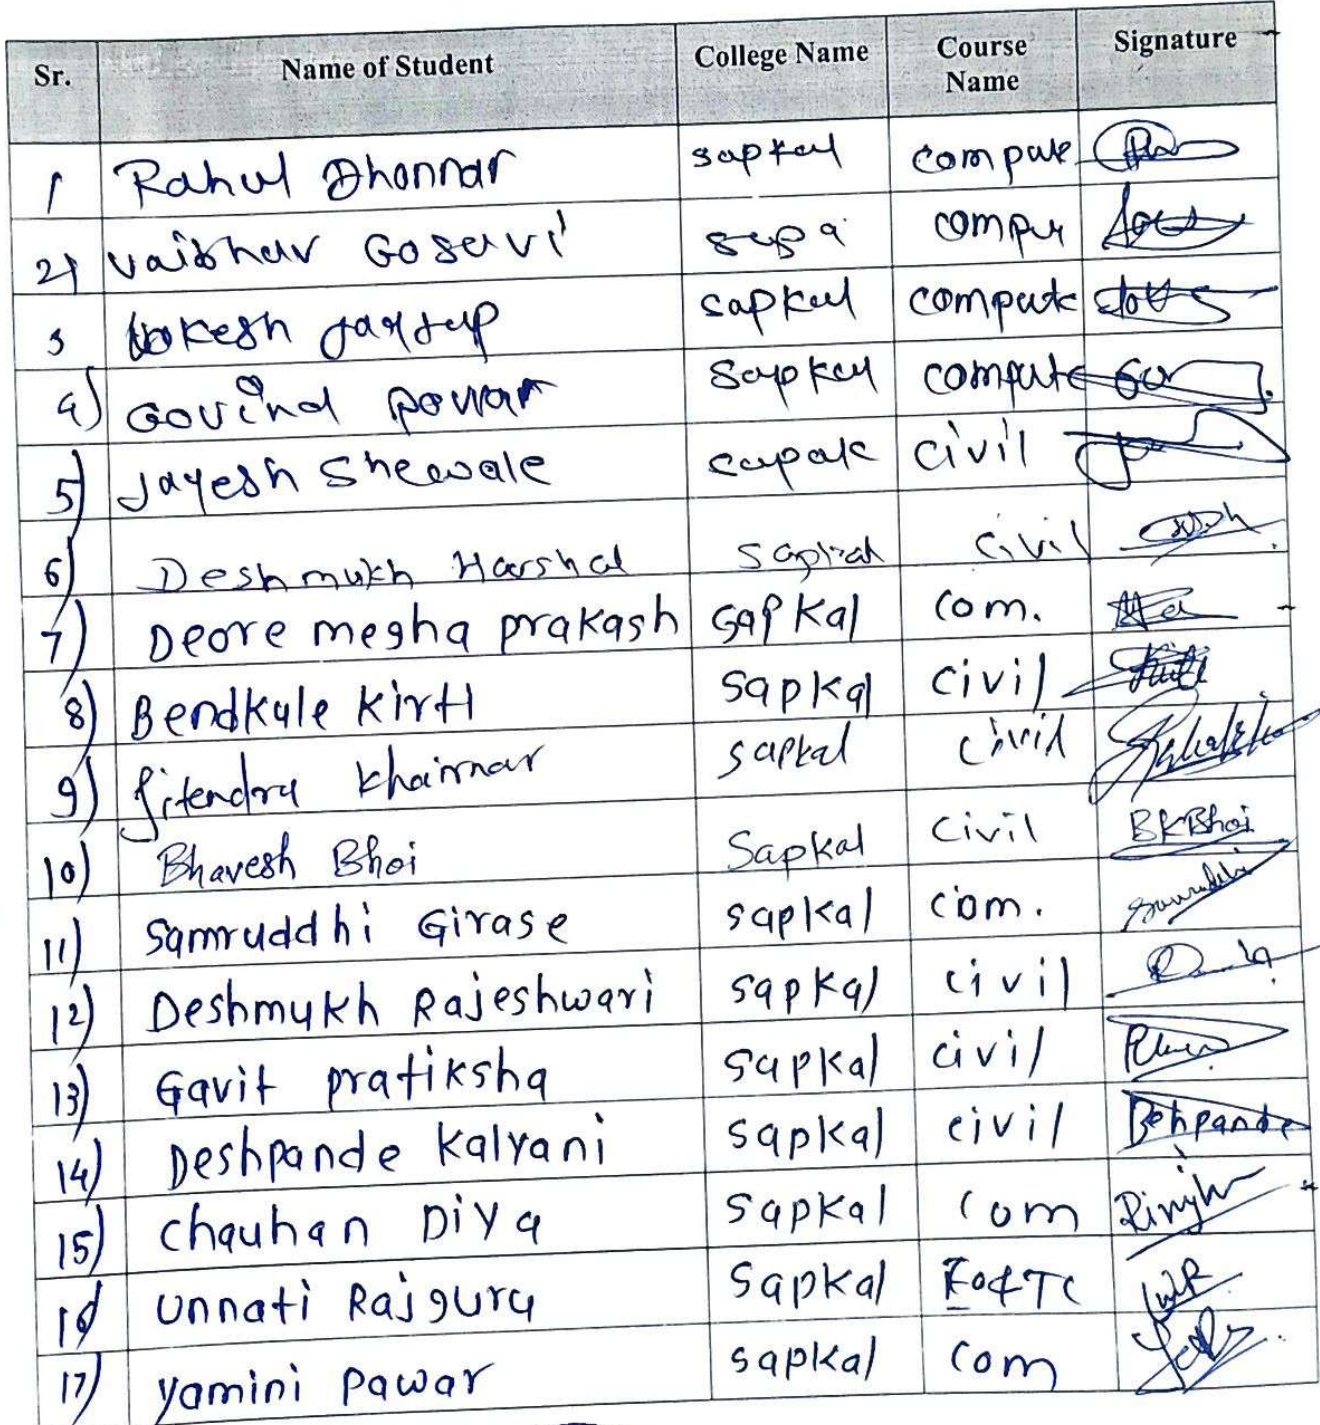 Sr. Name of Student College Name Course Name Signature
1 Rahul Dhonnar sapkal compute
2) Vaibhav Gosavi sapa compu
3 Lokesh sapkal compute
4) Govind Pawar Sapkal compute
5) Jayesh Shewale civil
6) Deshmukh Harshal Sapkal Civil
7) Deore megha prakash sapkal com.
8) Bendkule kirti sapkal civil
9) Jitendra Khairnar sapkal civil
10) Bhavesh Bhoi Sapkal Civil BKBhoi
11) Samruddhi Girase sapkal com. Samruddhi
12) Deshmukh Rajeshwari sapkal civil
13) Gavit pratiksha sapkal civil
14) Deshpande Kalyani sapkal civil Dehpande
15) Chauhan Diya sapkal com
16) Unnati Rajguru Sapkal E&TC
17) Yamini Pawar sapkal com